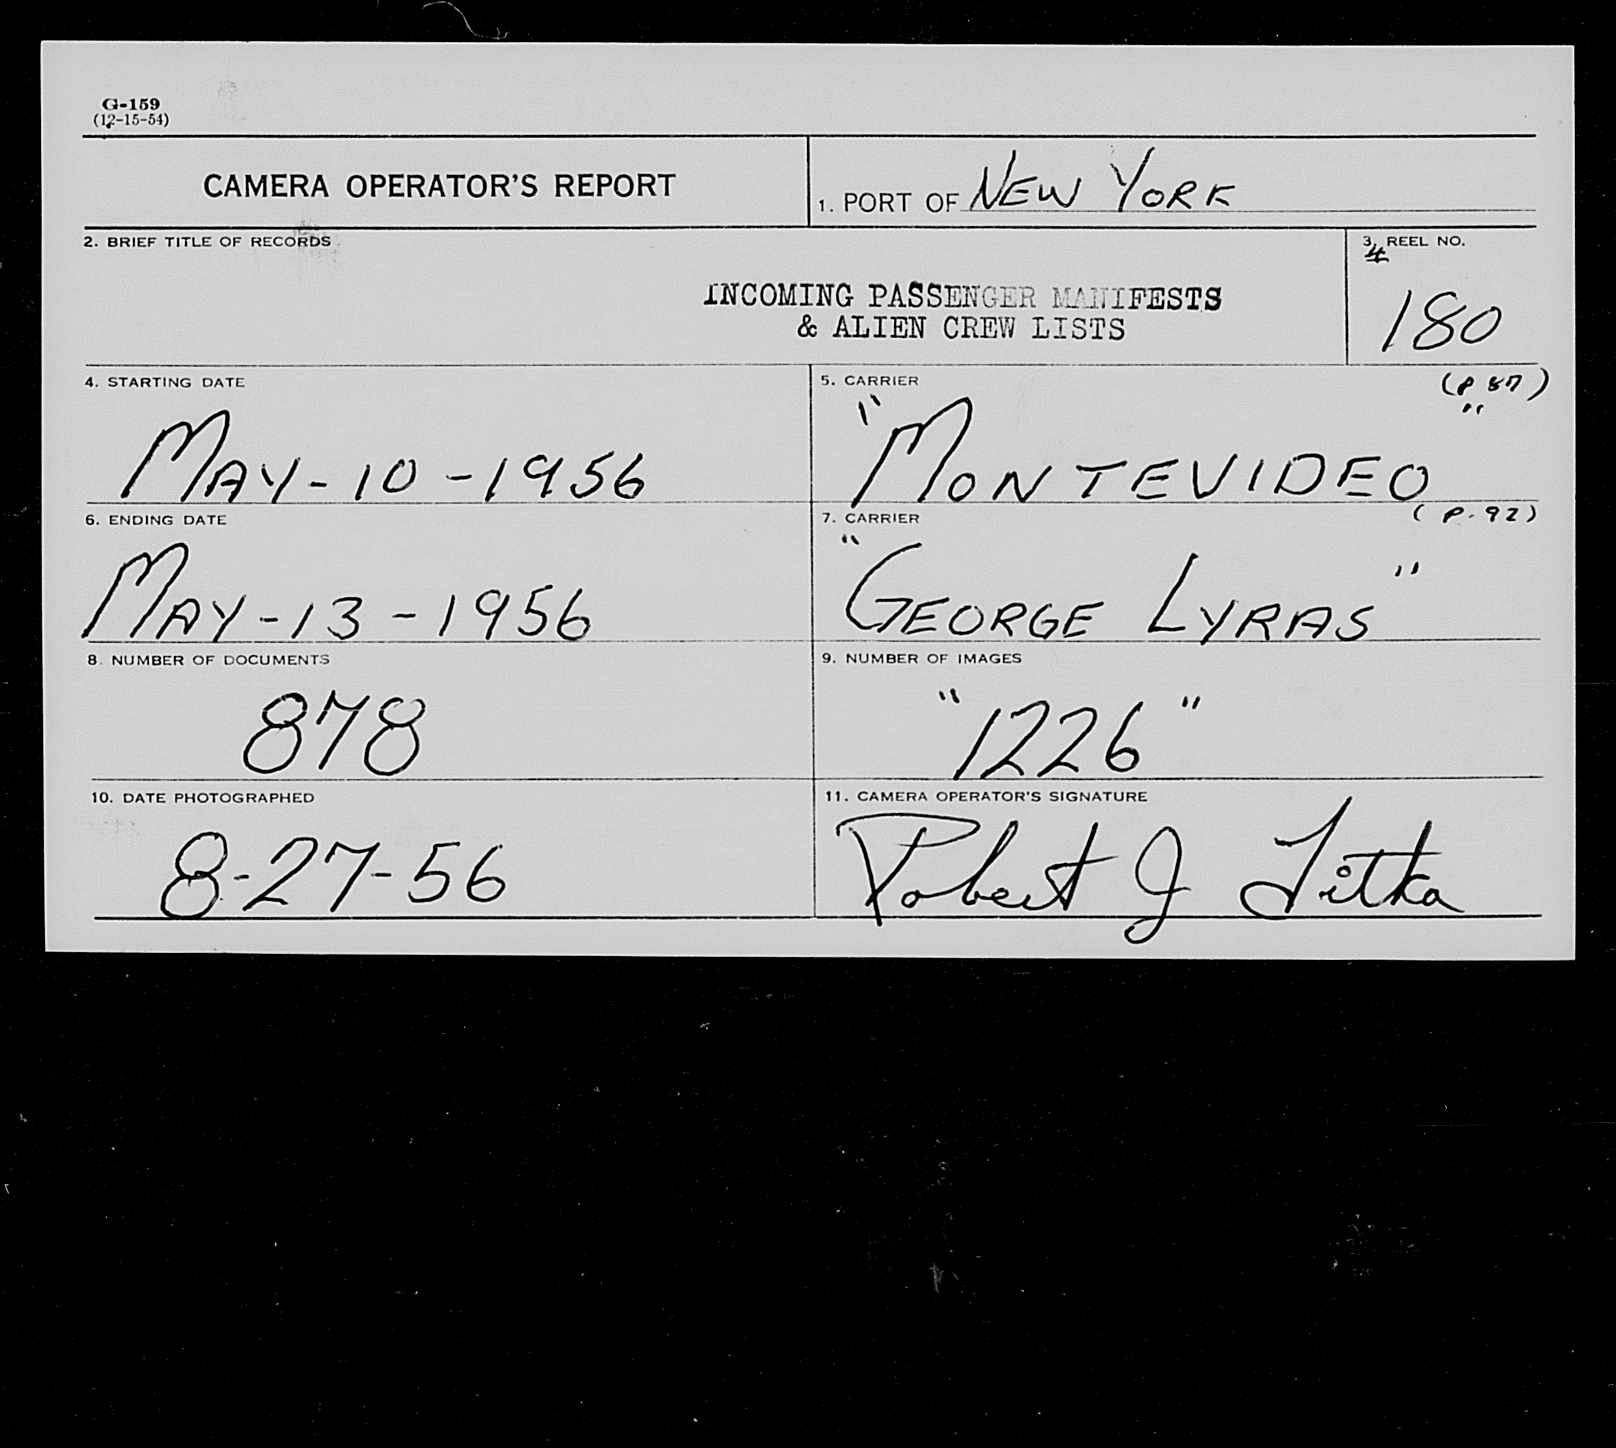 G-159
(12-15-54)
CAMERA OPERATOR'S REPORT
1. PORT OF NEW YORK
2. BRIEF TITLE OF RECORDS
INCOMING PASSENGER MANIFESTS
& ALIEN CREW LISTS
3. REEL NO.
4
180
4. STARTING DATE
MAY-10-1956
5. CARRIER
(P 87)
"MONTEVIDEO"
6. ENDING DATE
MAY-13-1956
7. CARRIER
(P.92)
"GEORGE LYRAS"
8. NUMBER OF DOCUMENTS
878
9. NUMBER OF IMAGES
"1226"
10. DATE PHOTOGRAPHED
8-27-56
11. CAMERA OPERATOR'S SIGNATURE
Robert J